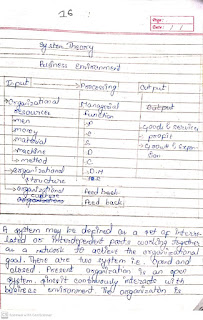 16
Page:
Date: / /
System Theory
Business environment
Input → Processing Output
Organizational Managerial Output
resources Function
men P → goods & service
money O → profit
material S → Growth & expan
machine D sion
→ method C
→ organizational D.M
structure
→ organizational Feed back
culture
Feed back
A system may be defined as a set of interre-
lated or interdependent parts working together
as a network to achieve the organizational
goal. There are two system i.e. open and
closed. Present organization is an open
system. Amsit continuously interacts with
business environment. The organization is